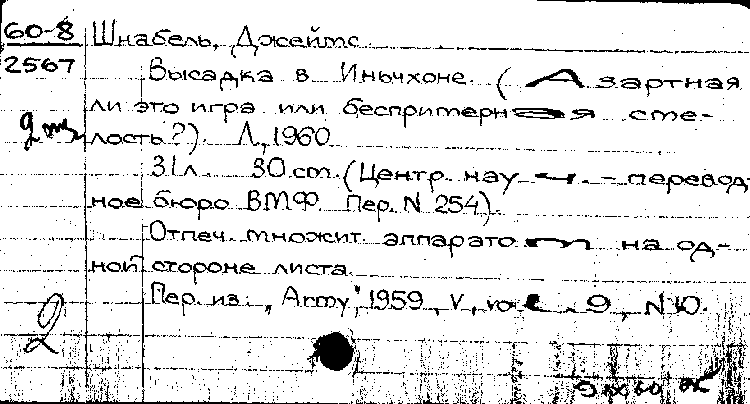 60-8 Шнабель, Джеймс
2567 Высадка в Иньчхоне. (Азартная
ли это игра или беспримерная сме-
лость?). Л., 1960.
31л. 30 cm. (Центр. науч.-перевод-
ное бюро ВМФ. Пер. N 254).
Отпеч. множит. аппаратом на од-
ной стороне листа.
Пер. из: „Army”, 1959, V, vol. 9, N 10.
2